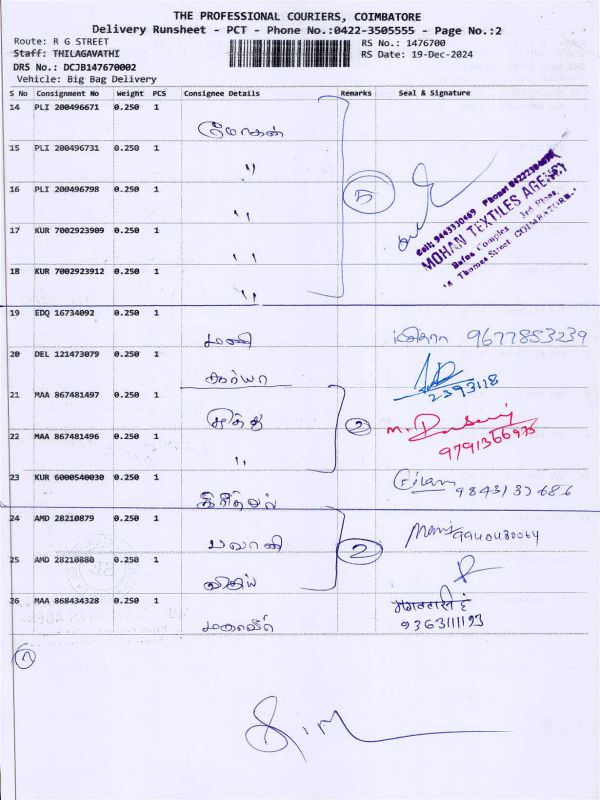 THE PROFESSIONAL COURIERS, COIMBATORE
Delivery Runsheet - PCT - Phone No.:0422-3505555 - Page No.:2
Route: R G STREET RS No.: 1476700
Staff: THILAGAVATHI RS Date: 19-Dec-2024
DRS No.: DCJB147670002
Vehicle: Big Bag Delivery
S No Consignment No Weight PCS Consignee Details Remarks Seal & Signature
14 PLI 200496671 0.250 1
மோகன்
15 PLI 200496731 0.250 1
"
16 PLI 200496798 0.250 1
" 5
Cell: 9443330469 Phone: 04222304
MOHAN TEXTILES AGENCY
Complex 3rd Floor,
Thomas Street COIMBATORE
17 KUR 7002923909 0.250 1
"
18 KUR 7002923912 0.250 1
"
19 EDQ 16734092 0.250 1
மணி 9677853239
20 DEL 121473079 0.250 1
சூர்யா 2393118
21 MAA 867481497 0.250 1
முத்து 2
22 MAA 867481496 0.250 1
" 9791366935
23 KUR 6000540030 0.250 1
9843137686
24 AMD 28210879 0.250 1
பவானி 2 Mani 9940480064
25 AMD 28210880 0.250 1
விஜய்
26 MAA 868434328 0.250 1
மகாவீர் 9363111193